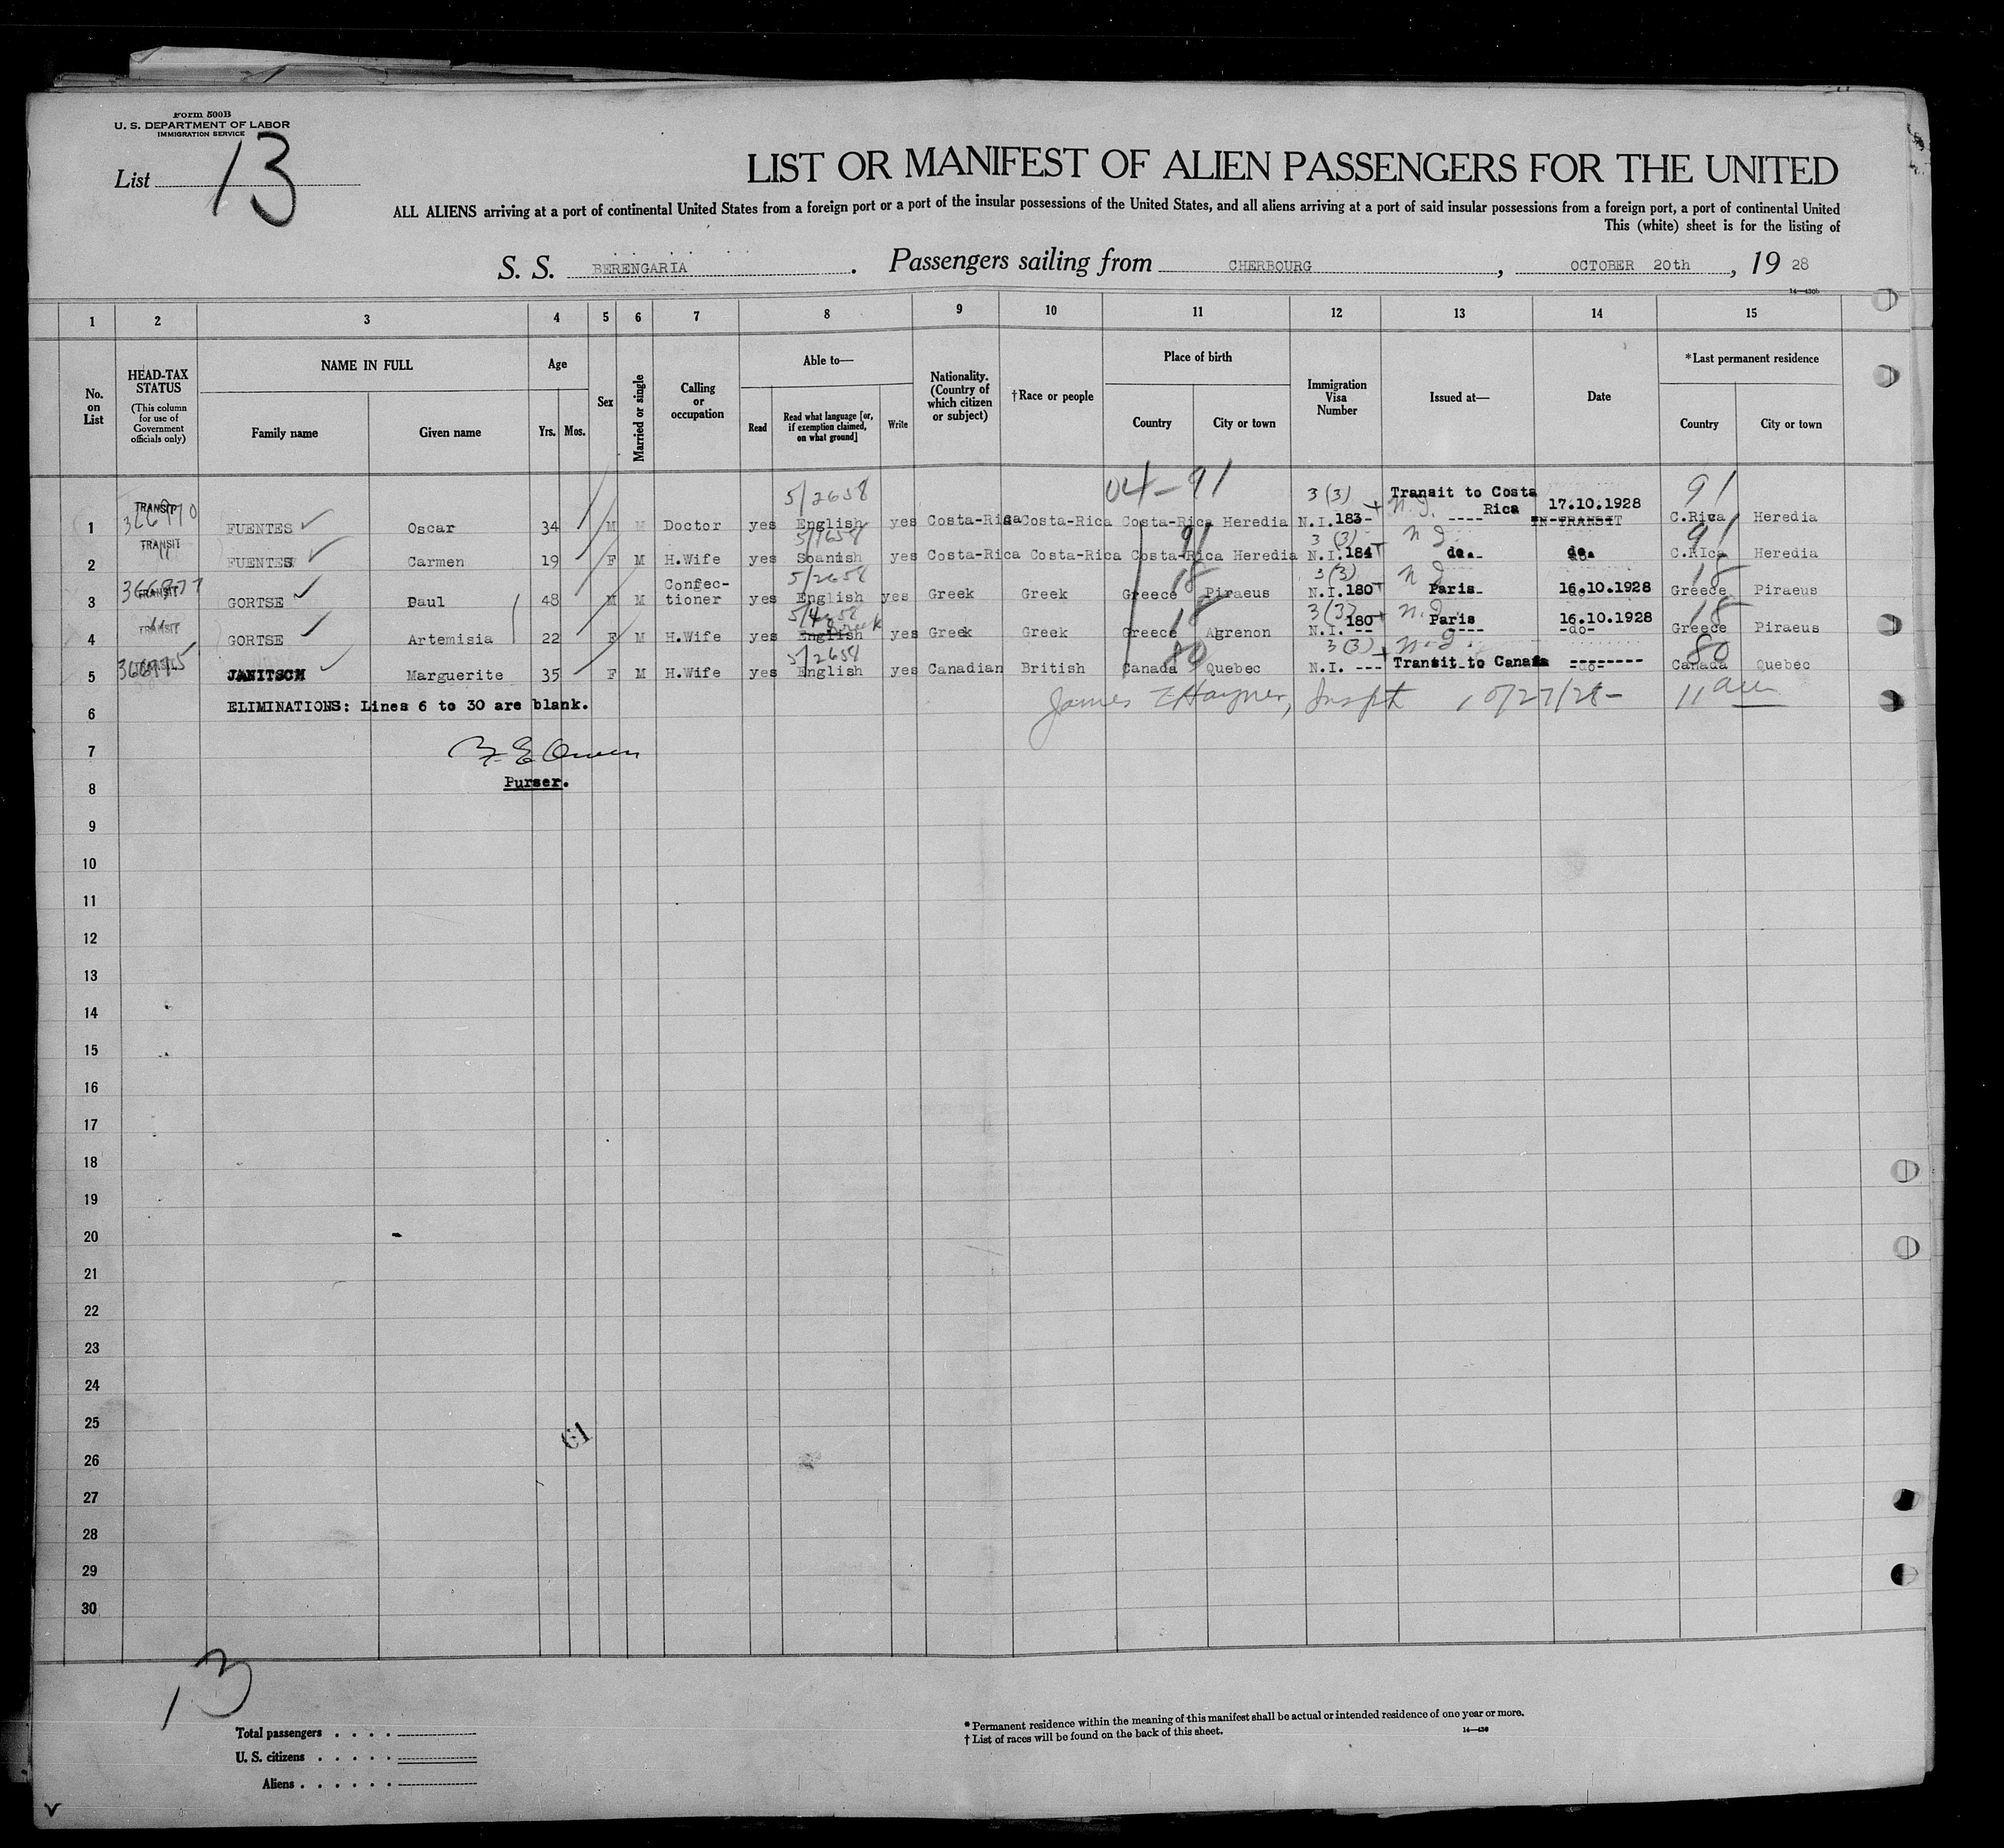 Form 500B
U. S. DEPARTMENT OF LABOR
IMMIGRATION SERVICE
List 13
LIST OR MANIFEST OF ALIEN PASSENGERS FOR THE UNITED
ALL ALIENS arriving at a port of continental United States from a foreign port or a port of the insular possessions of the United States, and all aliens arriving at a port of said insular possessions from a foreign port, a port of continental United
This (white) sheet is for the listing of
S. S. BERENGARIA. Passengers sailing from CHERBOURG, OCTOBER 20th, 19 28
14—430b
1 2 3 4 5 6 7 8 9 10 11 12 13 14 15
No. on List
HEAD-TAX STATUS (This column for use of Government officials only)
NAME IN FULL Family name Given name
Age Yrs. Mos.
Sex
Married or single
Calling or occupation
Able to— Read Read what language [or, if exemption claimed, on what ground] Write
Nationality. (Country of which citizen or subject)
†Race or people
Place of birth Country City or town
Immigration Visa Number
Issued at—
Date
*Last permanent residence Country City or town
04-91
5/2658 3(3) n.I. 91
1 TRANSIT FUENTES Oscar 34 M M Doctor yes English yes Costa-Rica Costa-Rica Costa-Rica Heredia N.I.183- Transit to Costa Rica ---- 17.10.1928 IN-TRANSIT C.Rica Heredia
91 3(3) n I 91
2 TRANSIT FUENTES Carmen 19 F M H.Wife yes Spanish yes Costa-Rica Costa-Rica Costa-Rica Heredia N.I.184 do. do. C.RIca Heredia
5/2658 18 3(3) n I 18
3 366977 TRANSIT GORTSE Paul 48 M M Confec-tioner yes English yes Greek Greek Greece Piraeus N.I.180 Paris 16.10.1928 Greece Piraeus
Greek 18 3(3) n.I. 18
4 TRANSIT GORTSE Artemisia 22 F M H.Wife yes English yes Greek Greek Greece Agrenon N.I. 180 Paris 16.10.1928 -do- Greece Piraeus
5/2658 80 3(3) n.I. 80
5 JANITSCH Marguerite 35 F M H.Wife yes English yes Canadian British Canada Quebec N.I. --- Transit to Canada -do- Canada Quebec
6 ELIMINATIONS: Lines 6 to 30 are blank. James Hayner, Inspt 10/27/28- 11 am
7 Owen
8 Purser.
9
10
11
12
13
14
15
16
17
18
19
20
21
22
23
24
25
26
27
28
29
30
13
Total passengers
U. S. citizens
Aliens
* Permanent residence within the meaning of this manifest shall be actual or intended residence of one year or more.
† List of races will be found on the back of this sheet.
14—430